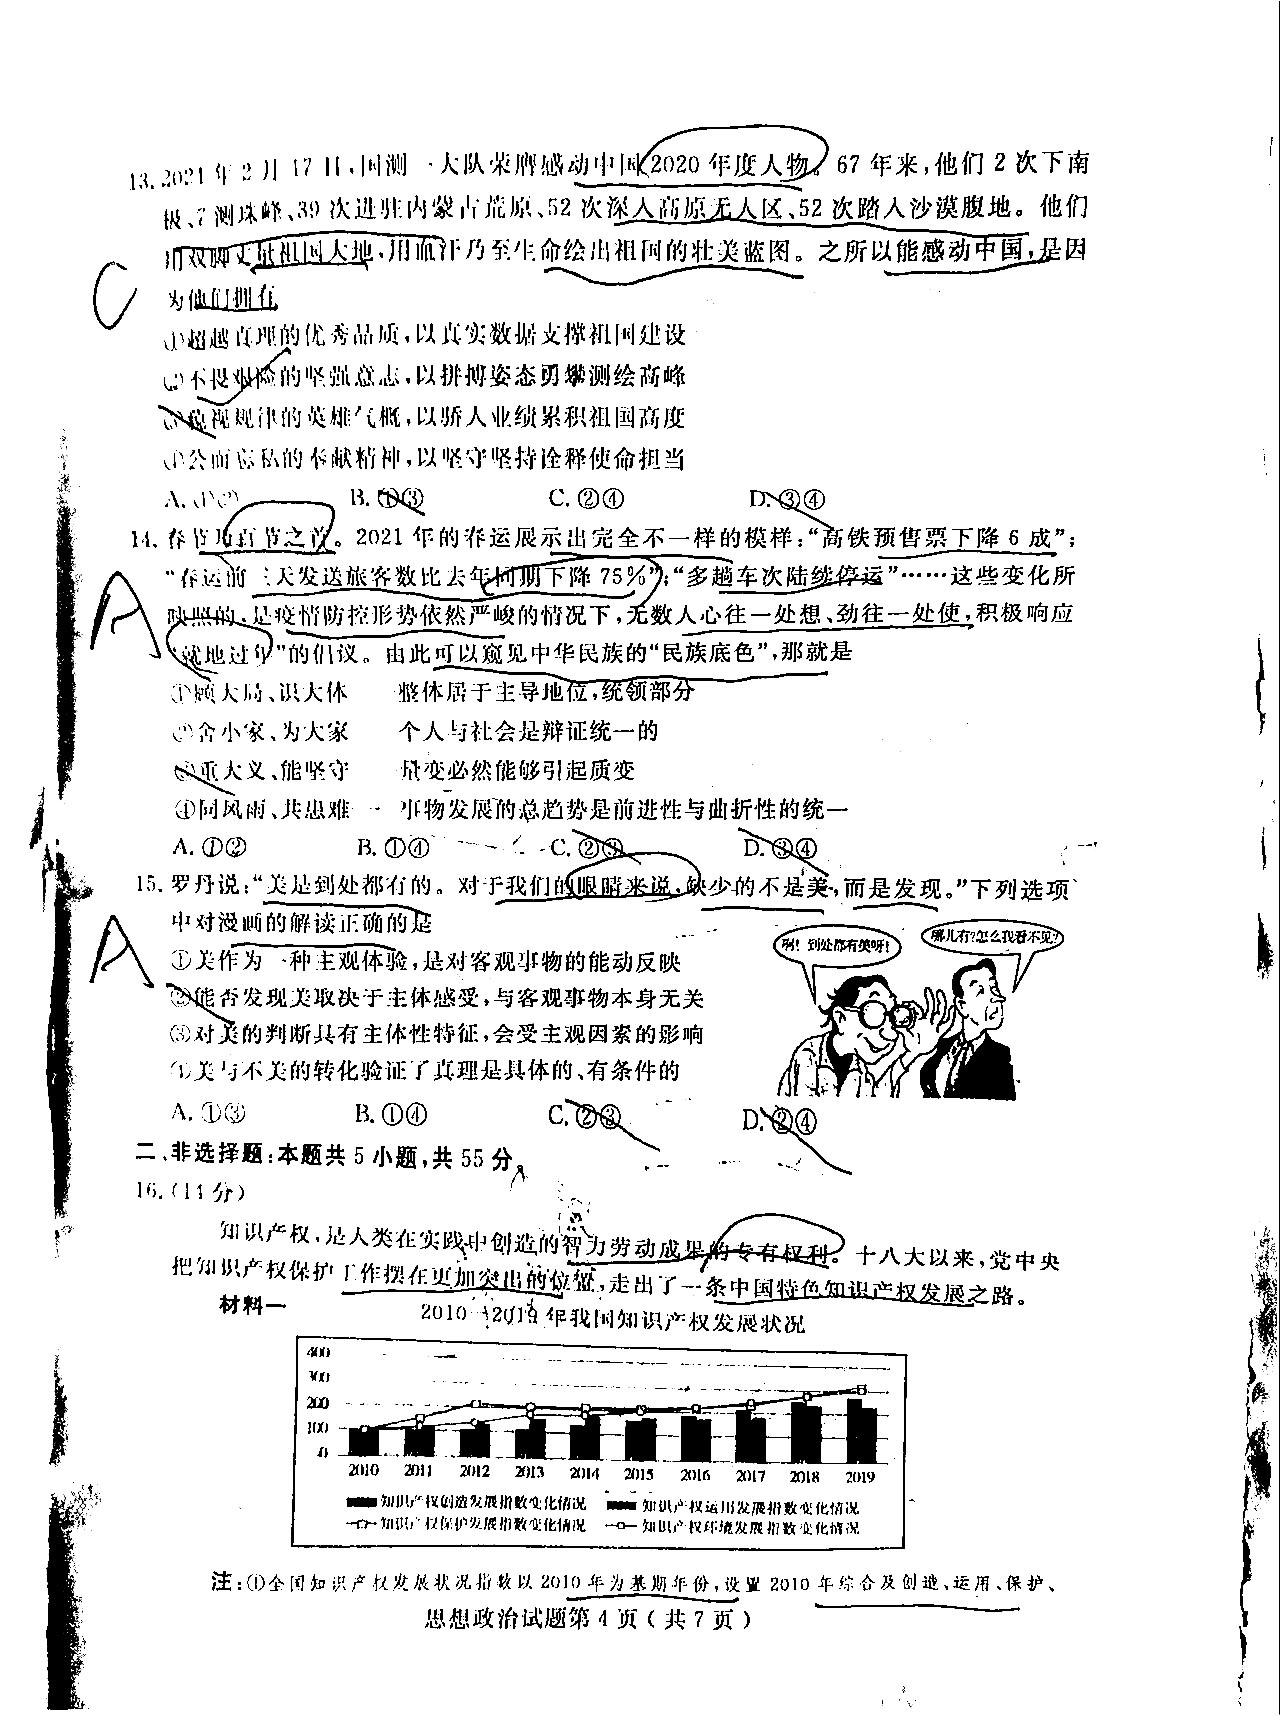 13. 2021年2月17日,国测一大队荣膺感动中国2020年度人物。67年来,他们2次下南
极、7测珠峰、39次进驻内蒙古荒原、52次深入高原无人区、52次踏入沙漠腹地。他们
用双脚丈量祖国大地,用血汗乃至生命绘出祖国的壮美蓝图。之所以能感动中国,是因
为他们拥有
C
①超越真理的优秀品质,以真实数据支撑祖国建设
②不畏艰险的坚强意志,以拼搏姿态勇攀测绘高峰
③蔑视规律的英雄气概,以骄人业绩累积祖国高度
④公而忘私的奉献精神,以坚守坚持诠释使命担当
A. ①② B. ①③ C. ②④ D. ③④
14. 春节乃百节之首。2021年的春运展示出完全不一样的模样:“高铁预售票下降6成”;
“春运前三天发送旅客数比去年同期下降75%”;“多趟车次陆续停运”……这些变化所
映照的,是疫情防控形势依然严峻的情况下,无数人心往一处想、劲往一处使,积极响应
“就地过年”的倡议。由此可以窥见中华民族的“民族底色”,那就是
A
①顾大局、识大体 整体居于主导地位,统领部分
②舍小家、为大家 个人与社会是辩证统一的
③重大义、能坚守 量变必然能够引起质变
④同风雨、共患难 事物发展的总趋势是前进性与曲折性的统一
A. ①② B. ①④ C. ②③ D. ③④
15. 罗丹说:“美是到处都有的。对于我们的眼睛来说,缺少的不是美,而是发现。”下列选项
中对漫画的解读正确的是
A
啊!到处都有美呀!
哪儿有?怎么我看不见?
①美作为一种主观体验,是对客观事物的能动反映
②能否发现美取决于主体感受,与客观事物本身无关
③对美的判断具有主体性特征,会受主观因素的影响
④美与不美的转化验证了真理是具体的、有条件的
A. ①③ B. ①④ C. ②③ D. ②④
二、非选择题:本题共5小题,共55分。
16. (14分)
知识产权,是人类在实践中创造的智力劳动成果的专有权利。十八大以来,党中央
把知识产权保护工作摆在更加突出的位置,走出了一条中国特色知识产权发展之路。
材料一
2010—2019年我国知识产权发展状况
400
300
200
100
0
2010 2011 2012 2013 2014 2015 2016 2017 2018 2019
知识产权创造发展指数变化情况 知识产权运用发展指数变化情况
知识产权保护发展指数变化情况 知识产权环境发展指数变化情况
注:①全国知识产权发展状况指数以2010年为基期年份,设置2010年综合及创造、运用、保护、
思想政治试题第4页(共7页)